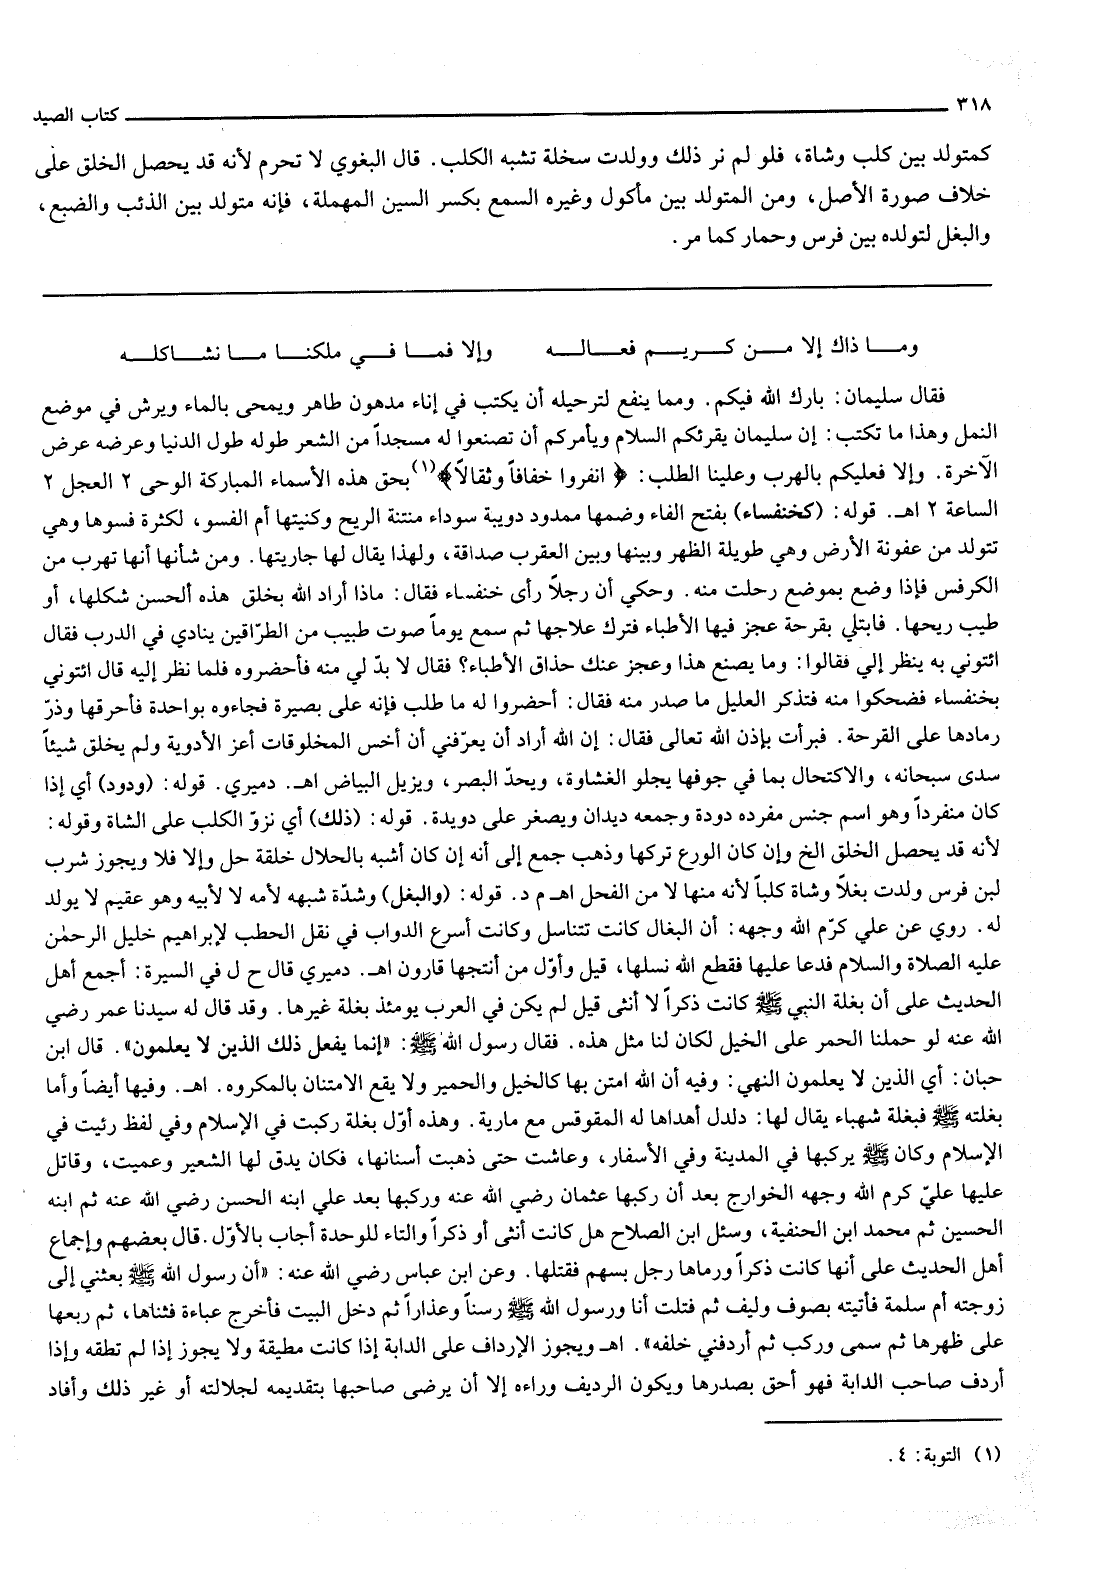 ٣١٨ كتاب الصيد
كمتولد بين كلب وشاة، فلو لم نر ذلك وولدت سخلة تشبه الكلب. قال البغوي لا تحرم لأنه قد يحصل الخلق على
خلاف صورة الأصل، ومن المتولد بين مأكول وغيره السمع بكسر السين المهملة، فإنه متولد بين الذئب والضبع،
والبغل لتولده بين فرس وحمار كما مر.
ومـــا ذاك إلا مـــن كـــريـــم فعـــالـــه وإلا فمـــا فـــي ملكنـــا مـــا نشـــاكلـــه
فقال سليمان: بارك الله فيكم. ومما ينفع لترحيله أن يكتب في إناء مدهون طاهر ويمحى بالماء ويرش في موضع
النمل وهذا ما تكتب: إن سليمان يقرئكم السلام ويأمركم أن تصنعوا له مسجداً من الشعر طوله طول الدنيا وعرضه عرض
الآخرة. وإلا فعليكم بالهرب وعلينا الطلب: ﴿ انفروا خفافاً وثقالاً﴾(١) بحق هذه الأسماء المباركة الوحى ٢ العجل ٢
الساعة ٢ اهـ. قوله: (كخنفساء) بفتح الفاء وضمها ممدود دويبة سوداء منتنة الريح وكنيتها أم الفسو، لكثرة فسوها وهي
تتولد من عفونة الأرض وهي طويلة الظهر وبينها وبين العقرب صداقة، ولهذا يقال لها جاريتها. ومن شأنها أنها تهرب من
الكرفس فإذا وضع بموضع رحلت منه. وحكي أن رجلاً رأى خنفساء فقال: ماذا أراد الله بخلق هذه ألحسن شكلها، أو
طيب ريحها. فابتلي بقرحة عجز فيها الأطباء فترك علاجها ثم سمع يوماً صوت طبيب من الطرّاقين ينادي في الدرب فقال
ائتوني به ينظر إلي فقالوا: وما يصنع هذا وعجز عنك حذاق الأطباء؟ فقال لا بدّ لي منه فأحضروه فلما نظر إليه قال ائتوني
بخنفساء فضحكوا منه فتذكر العليل ما صدر منه فقال: أحضروا له ما طلب فإنه على بصيرة فجاءوه بواحدة فأحرقها وذرّ
رمادها على القرحة. فبرأت بإذن الله تعالى فقال: إن الله أراد أن يعرّفني أن أخس المخلوقات أعز الأدوية ولم يخلق شيئاً
سدى سبحانه، والاكتحال بما في جوفها يجلو الغشاوة، ويحدّ البصر، ويزيل البياض اهـ. دميري. قوله: (ودود) أي إذا
كان منفرداً وهو اسم جنس مفرده دودة وجمعه ديدان ويصغر على دويدة. قوله: (ذلك) أي نزوّ الكلب على الشاة وقوله:
لأنه قد يحصل الخلق الخ وإن كان الورع تركها وذهب جمع إلى أنه إن كان أشبه بالحلال خلقة حل وإلا فلا ويجوز شرب
لبن فرس ولدت بغلاً وشاة كلباً لأنه منها لا من الفحل اهـ م د. قوله: (والبغل) وشدّة شبهه لأمه لا لأبيه وهو عقيم لا يولد
له. روي عن علي كرّم الله وجهه: أن البغال كانت تتناسل وكانت أسرع الدواب في نقل الحطب لإبراهيم خليل الرحمٰن
عليه الصلاة والسلام فدعا عليها فقطع الله نسلها، قيل وأوّل من أنتجها قارون اهـ. دميري قال ح ل في السيرة: أجمع أهل
الحديث على أن بغلة النبي ﷺ كانت ذكراً لا أنثى قيل لم يكن في العرب يومئذ بغلة غيرها. وقد قال له سيدنا عمر رضي
الله عنه لو حملنا الحمر على الخيل لكان لنا مثل هذه. فقال رسول الله ﷺ: «إنما يفعل ذلك الذين لا يعلمون». قال ابن
حبان: أي الذين لا يعلمون النهي: وفيه أن الله امتن بها كالخيل والحمير ولا يقع الامتنان بالمكروه. اهـ. وفيها أيضاً وأما
بغلته ﷺ فبغلة شهباء يقال لها: دلدل أهداها له المقوقس مع مارية. وهذه أوّل بغلة ركبت في الإسلام وفي لفظ رئيت في
الإسلام وكان ﷺ يركبها في المدينة وفي الأسفار، وعاشت حتى ذهبت أسنانها، فكان يدق لها الشعير وعميت، وقاتل
عليها عليّ كرم الله وجهه الخوارج بعد أن ركبها عثمان رضي الله عنه وركبها بعد علي ابنه الحسن رضي الله عنه ثم ابنه
الحسين ثم محمد ابن الحنفية، وسئل ابن الصلاح هل كانت أنثى أو ذكراً والتاء للوحدة أجاب بالأوّل.قال بعضهم وإجماع
أهل الحديث على أنها كانت ذكراً ورماها رجل بسهم فقتلها. وعن ابن عباس رضي الله عنه: «أن رسول الله ﷺ بعثني إلى
زوجته أم سلمة فأتيته بصوف وليف ثم فتلت أنا ورسول الله ﷺ رسناً وعذاراً ثم دخل البيت فأخرج عباءة فثناها، ثم ربعها
على ظهرها ثم سمى وركب ثم أردفني خلفه». اهـ ويجوز الإرداف على الدابة إذا كانت مطيقة ولا يجوز إذا لم تطقه وإذا
أردف صاحب الدابة فهو أحق بصدرها ويكون الرديف وراءه إلا أن يرضى صاحبها بتقديمه لجلالته أو غير ذلك وأفاد
(١) التوبة: ٤.